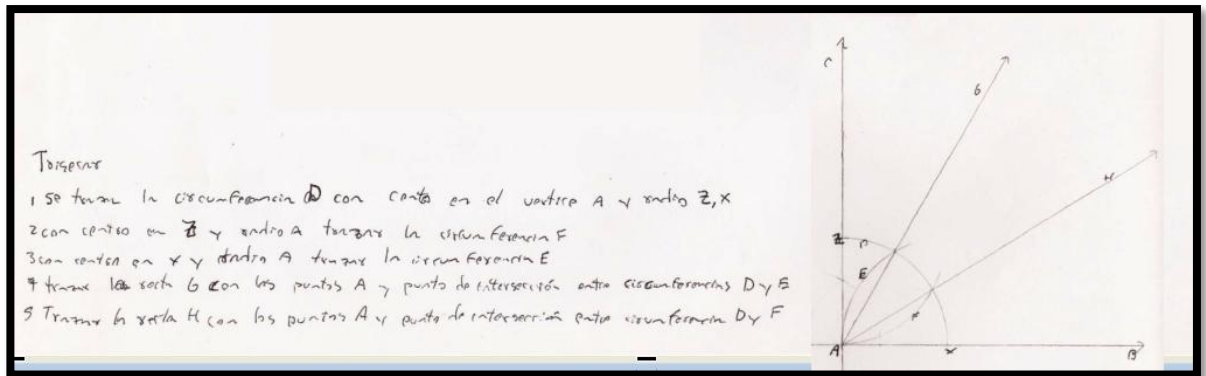 Trisecar
1 Se trazar la circunferencia D con centro en el vertice A y radio Z,X
2 con centro en Z y radio A trazar la circunferencia F
3 con centro en X y radio A trazar la circunferencia E
4 trazar la recta G con los puntos A y punto de intersección entre circunferencias D y E
5 Trazar la recta H con los puntos A y punto de intersección entre circunferencia D y F
C
G
H
Z
D
E
F
A
X
B